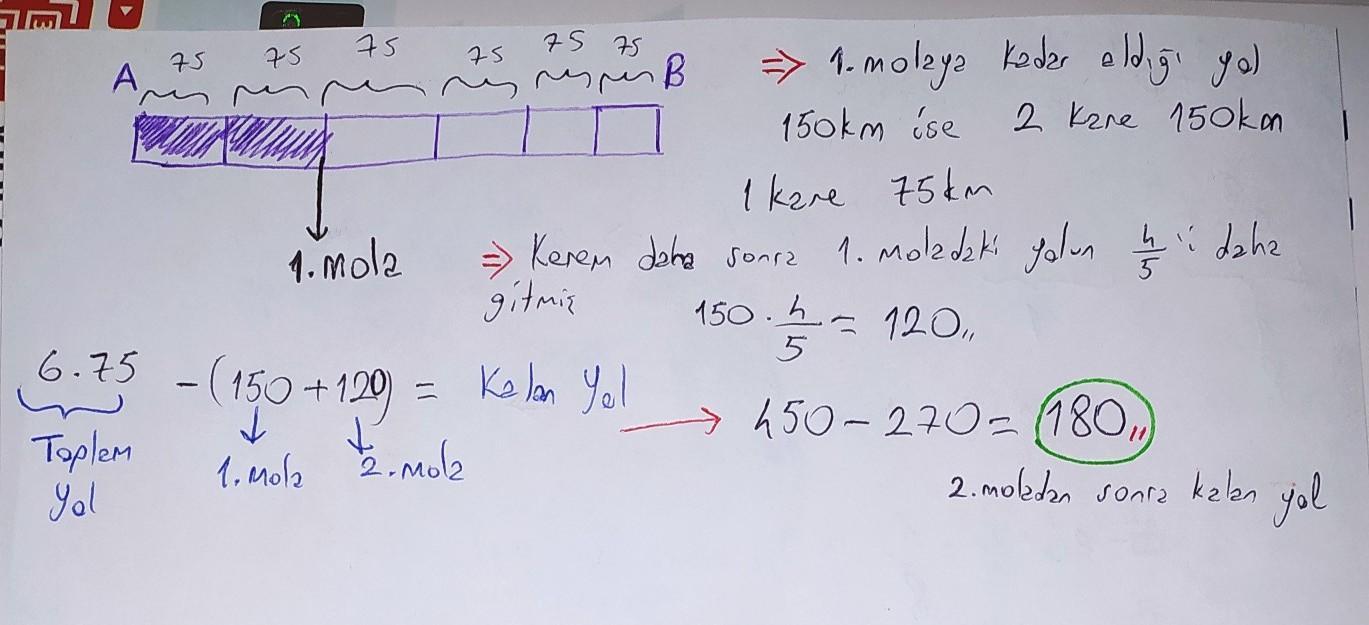 75 75 75 75 75 75
A B
1.mola
⇒ 1.molaya kadar aldığı yol
150km ise 2 kare 150km
1 kare 75km
⇒ Kerem daha sonra 1. moladaki yolun 4/5 'i daha
gitmiş
150 . 4/5 = 120,,
6.75 - (150 + 120) = Kalan Yol → 450 - 270 = 180,,
Toplam
Yol
1.mola 2.mola
2.moladan sonra kalan yol